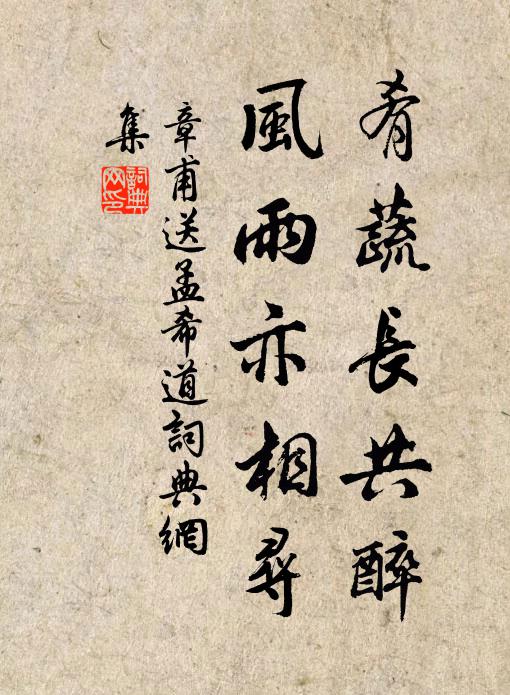 肴蔬長共醉
風雨亦相尋
章甫送孟希道詞典網
集
詞典網印